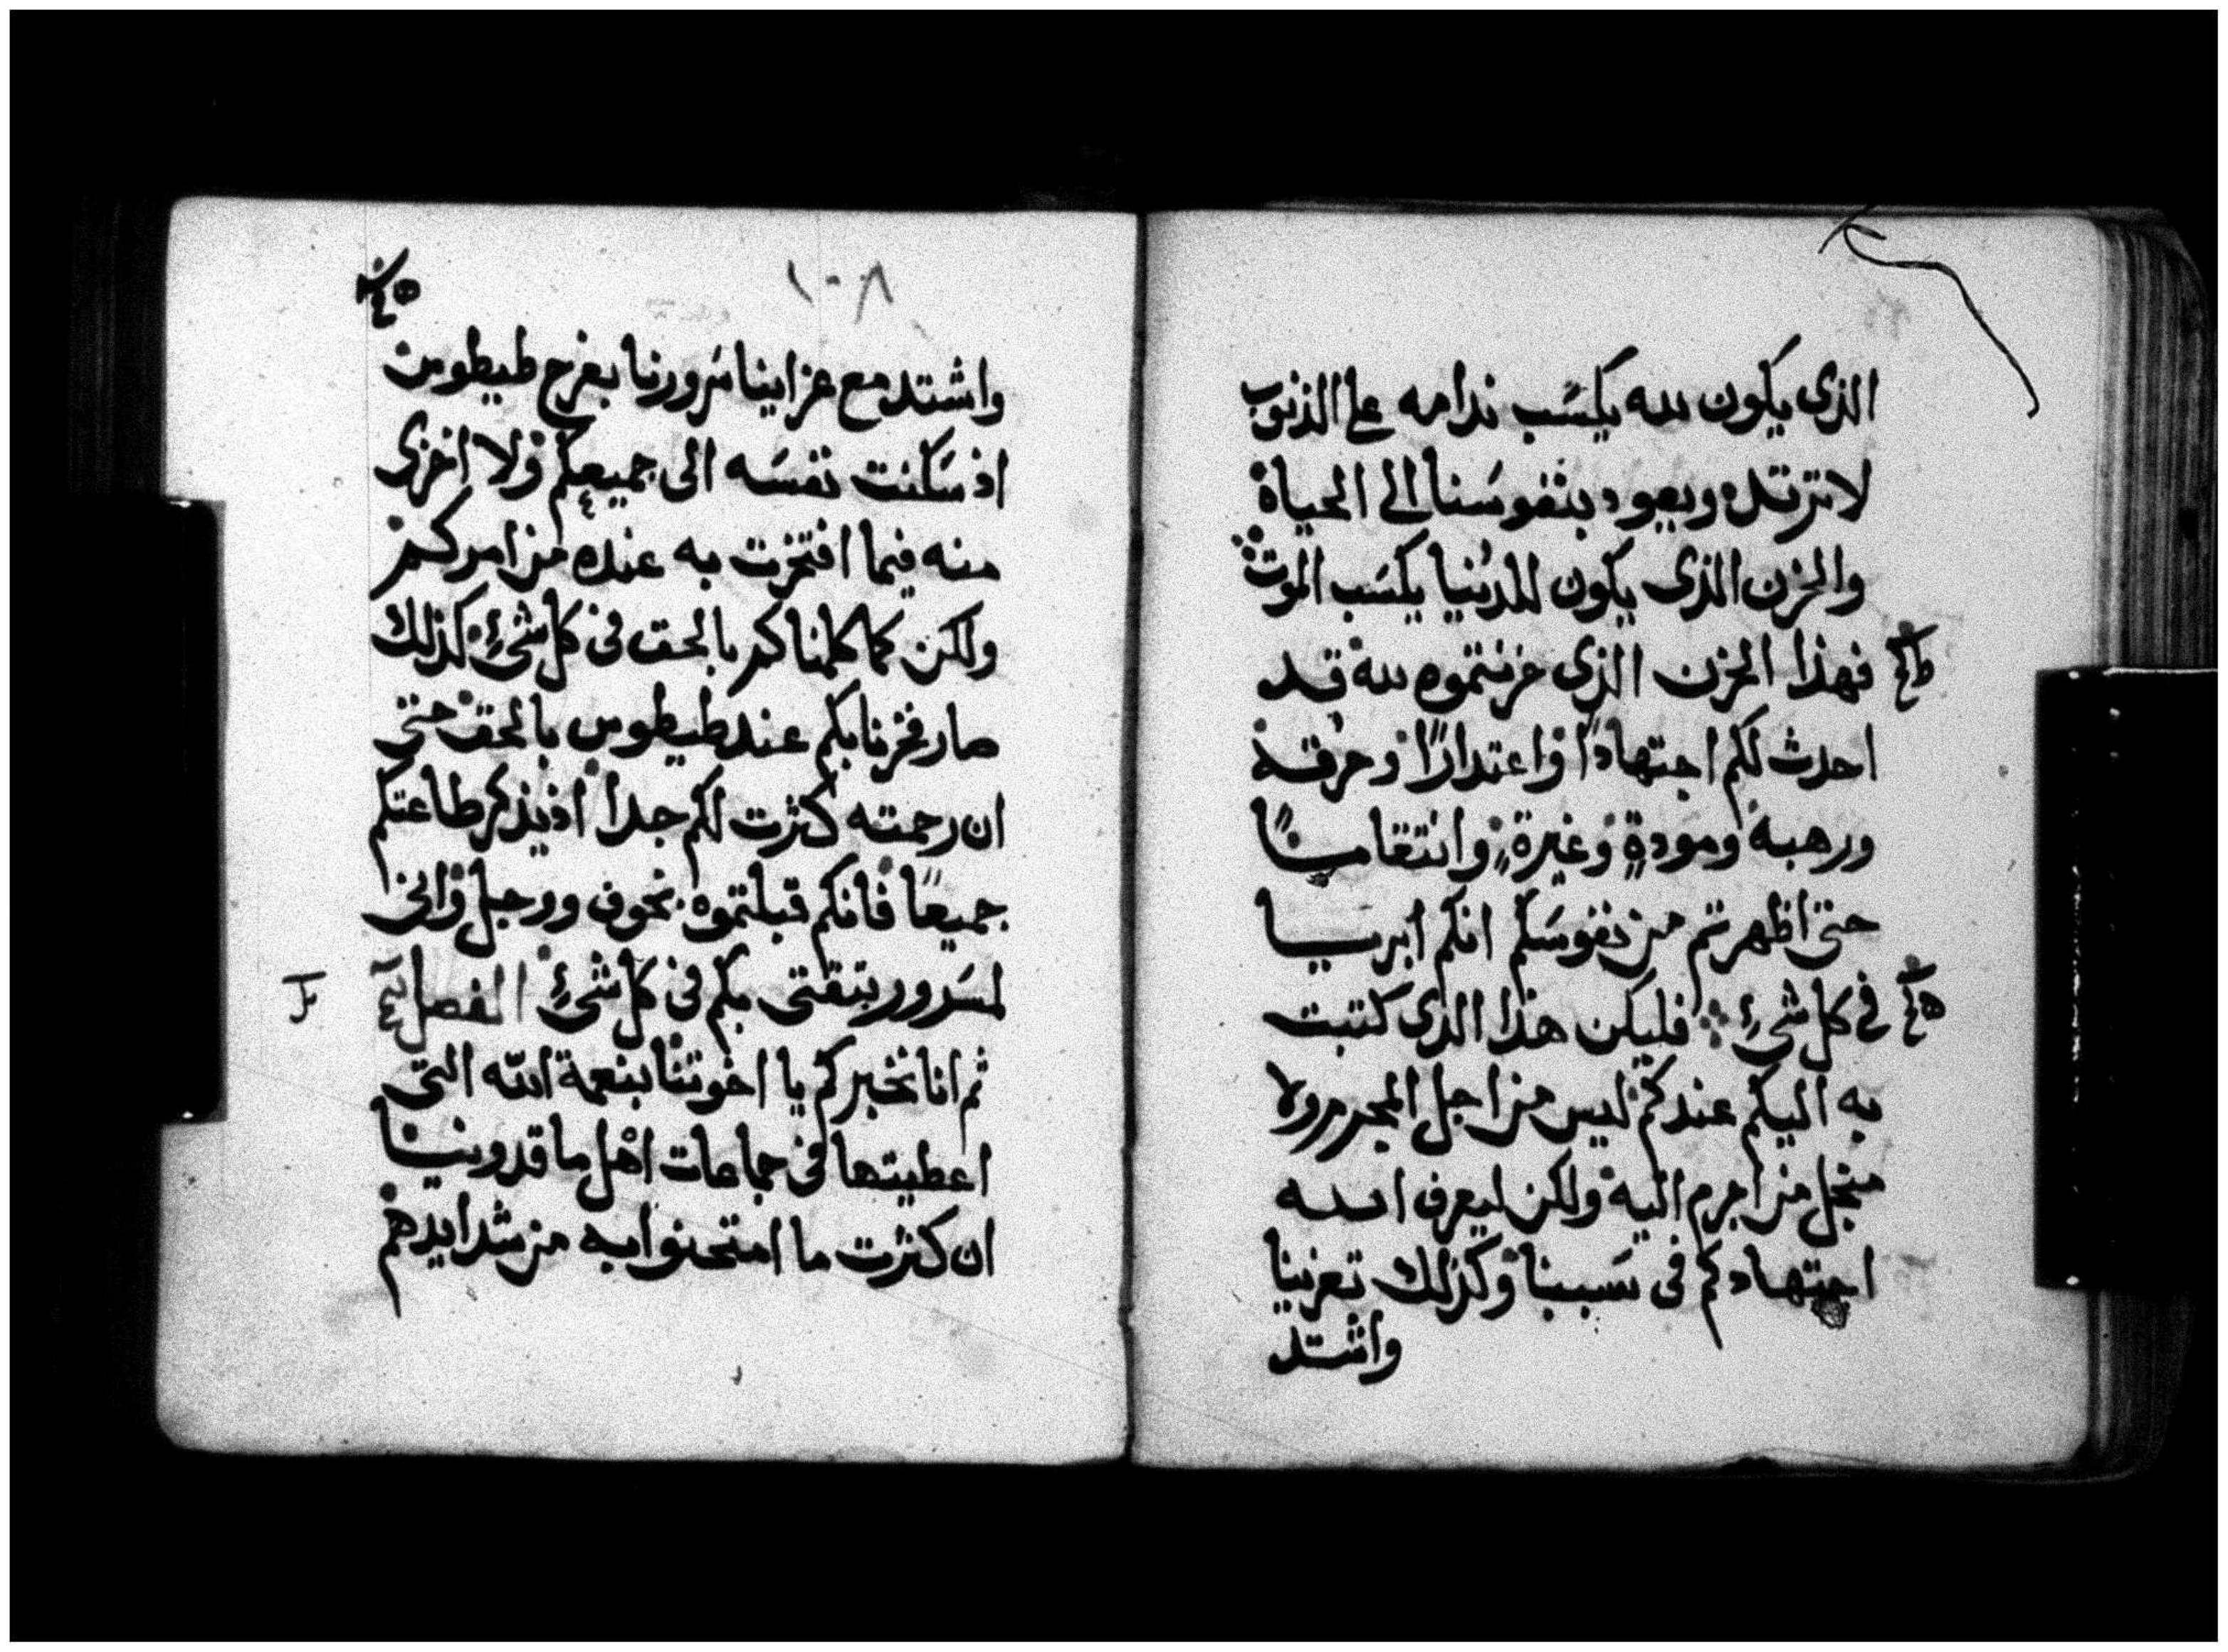 الذى يكون لله يكسَب ندامه على الذنوب
لا ترتد ويعود بنفوسَنا الى الحياة
والحزن الذى يكون للدُنيا يكسَب الموت
فهذا الحزن الذى حزنتموه لله قد
احدث لكم اجتهادًا واعتدارًا وحرقة
ورهبة ومودةٍ وغيرةٍ وانتقامًا
حتى اظهرتم من نفوسَكم انكم ابريا
فى كل شىءٍ فليكن هذا الذى كتبت
به اليكم عندكم ليس من اجل المجرم ولا
منجل من اجرم اليه ولكن ليعرف الله
اجتهادكم فى سَببنا وكذلك تعزينا
واشتد
١٠٨
واشتد مع عزاينا سَرورنا بفرح طيطوس
اذ سَكنت نفسَه الى جميعكم ولا اخزى
منه فيما افتخرت به عنده من امركم
ولكن كما كلمناكم بالحق فى كل شىءٍ كذلك
صار فخرنا بكم عند طيطوس بالحق حتى
ان رحمته كثرت لكم جدا اذ يذكر طاعتكم
جميعًا فانكم قبلتموه بخوف ووجل وانى
لمسَرور بثقتى بكم فى كل شىءٍ الفصل
ثم انا نخبركم يا اخوتنا بنعمة الله التى
اعطيتها فى جماعات اهل ماقدونيا
ان كثرت ما امتحنوا به من شدايدهم